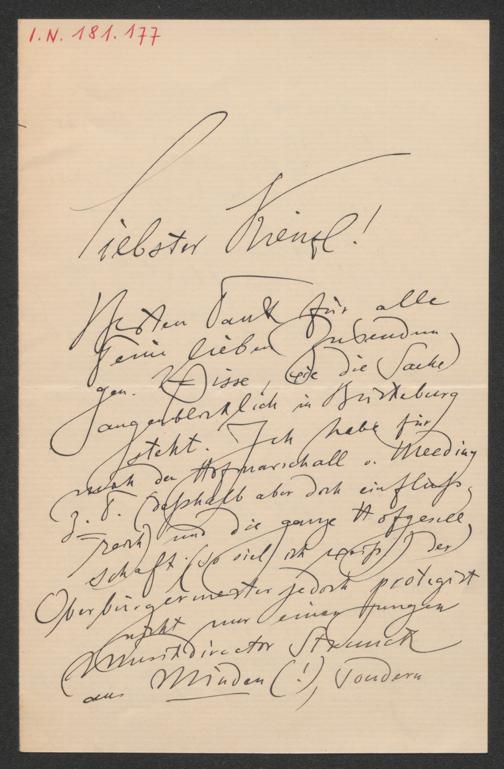 I.N. 181.177
Liebster Kienzl!
Besten Dank für alle
Deine lieben Zusendun
gen. Wisse, wie die Sache
augenblicklich in Bückeburg
steht. Ich habe für
mich den Hofmarschall v. Meeding
(deßhalb aber doch einfluß,
reich) und die ganze Hofgesell
schaft. (so viel ich weiß) Der
Oberbürgermeister jedoch protegirt
nicht nur einen jungen
Musikdirector
aus Minden (!), sondern